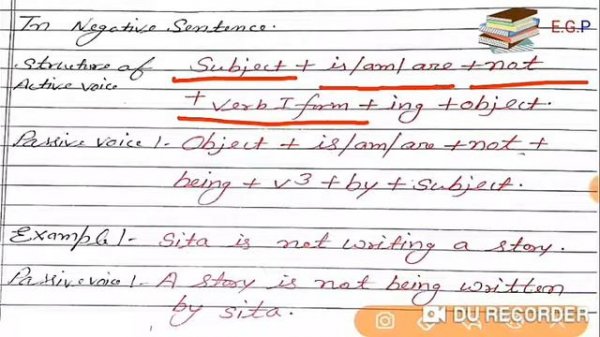 In Negative Sentence.
E.G.P
Structure of Subject + is/am/are + not
Active voice + Verb I form + ing + object.
Passive voice :- Object + is/am/are + not +
being + v3 + by + Subject.
Example :- Sita is not writing a story.
Passive voice :- A story is not being written
by sita.
DU RECORDER